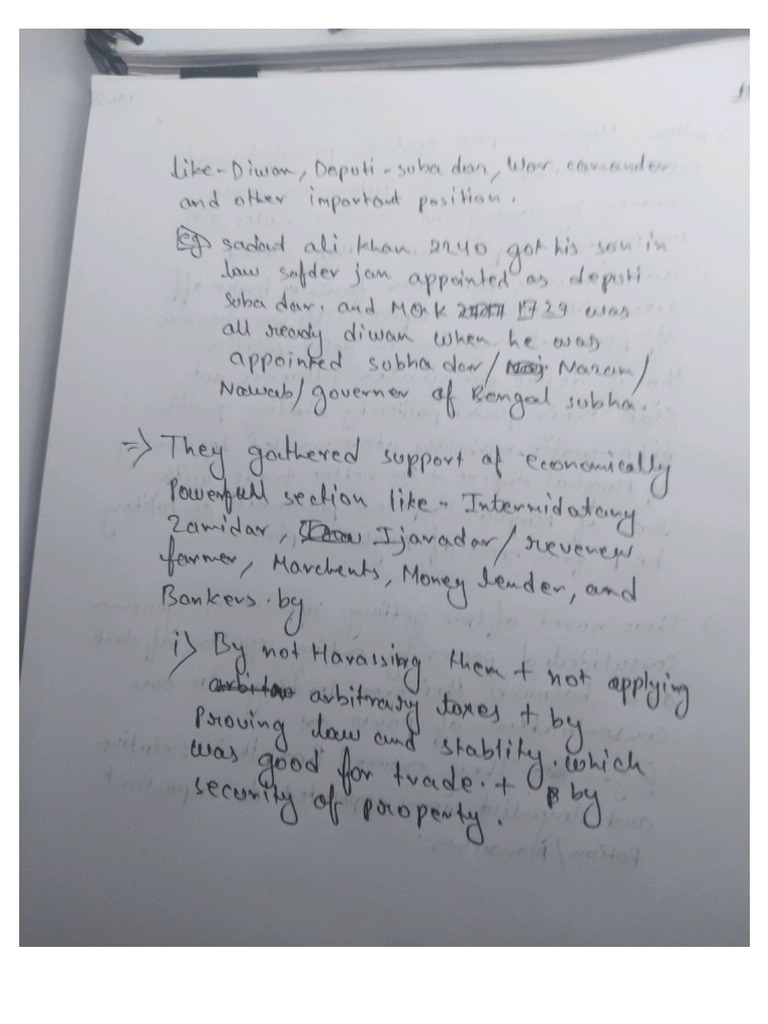 like - Diwan, Deputi - suba dar, War comander
and other important position.
eg sadaat ali khan 2240 got his son in
law safder jan appointed as deputi
suba dar, and MQK 1729 was
all ready diwan when he was
appointed subha dar/ Nazam/
Nawab/governer of Bengal subha.
⇒ They gathered support of economically
Powerfull section like - Intermidatary
Zamidar, Ijaradar/revenew
farmer, Marchents, Money lender, and
Bankers. by
i> By not Harassing them + not applying
arbitrary taxes + by
Proving law and stablity. which
was good for trade. + by
security of property.